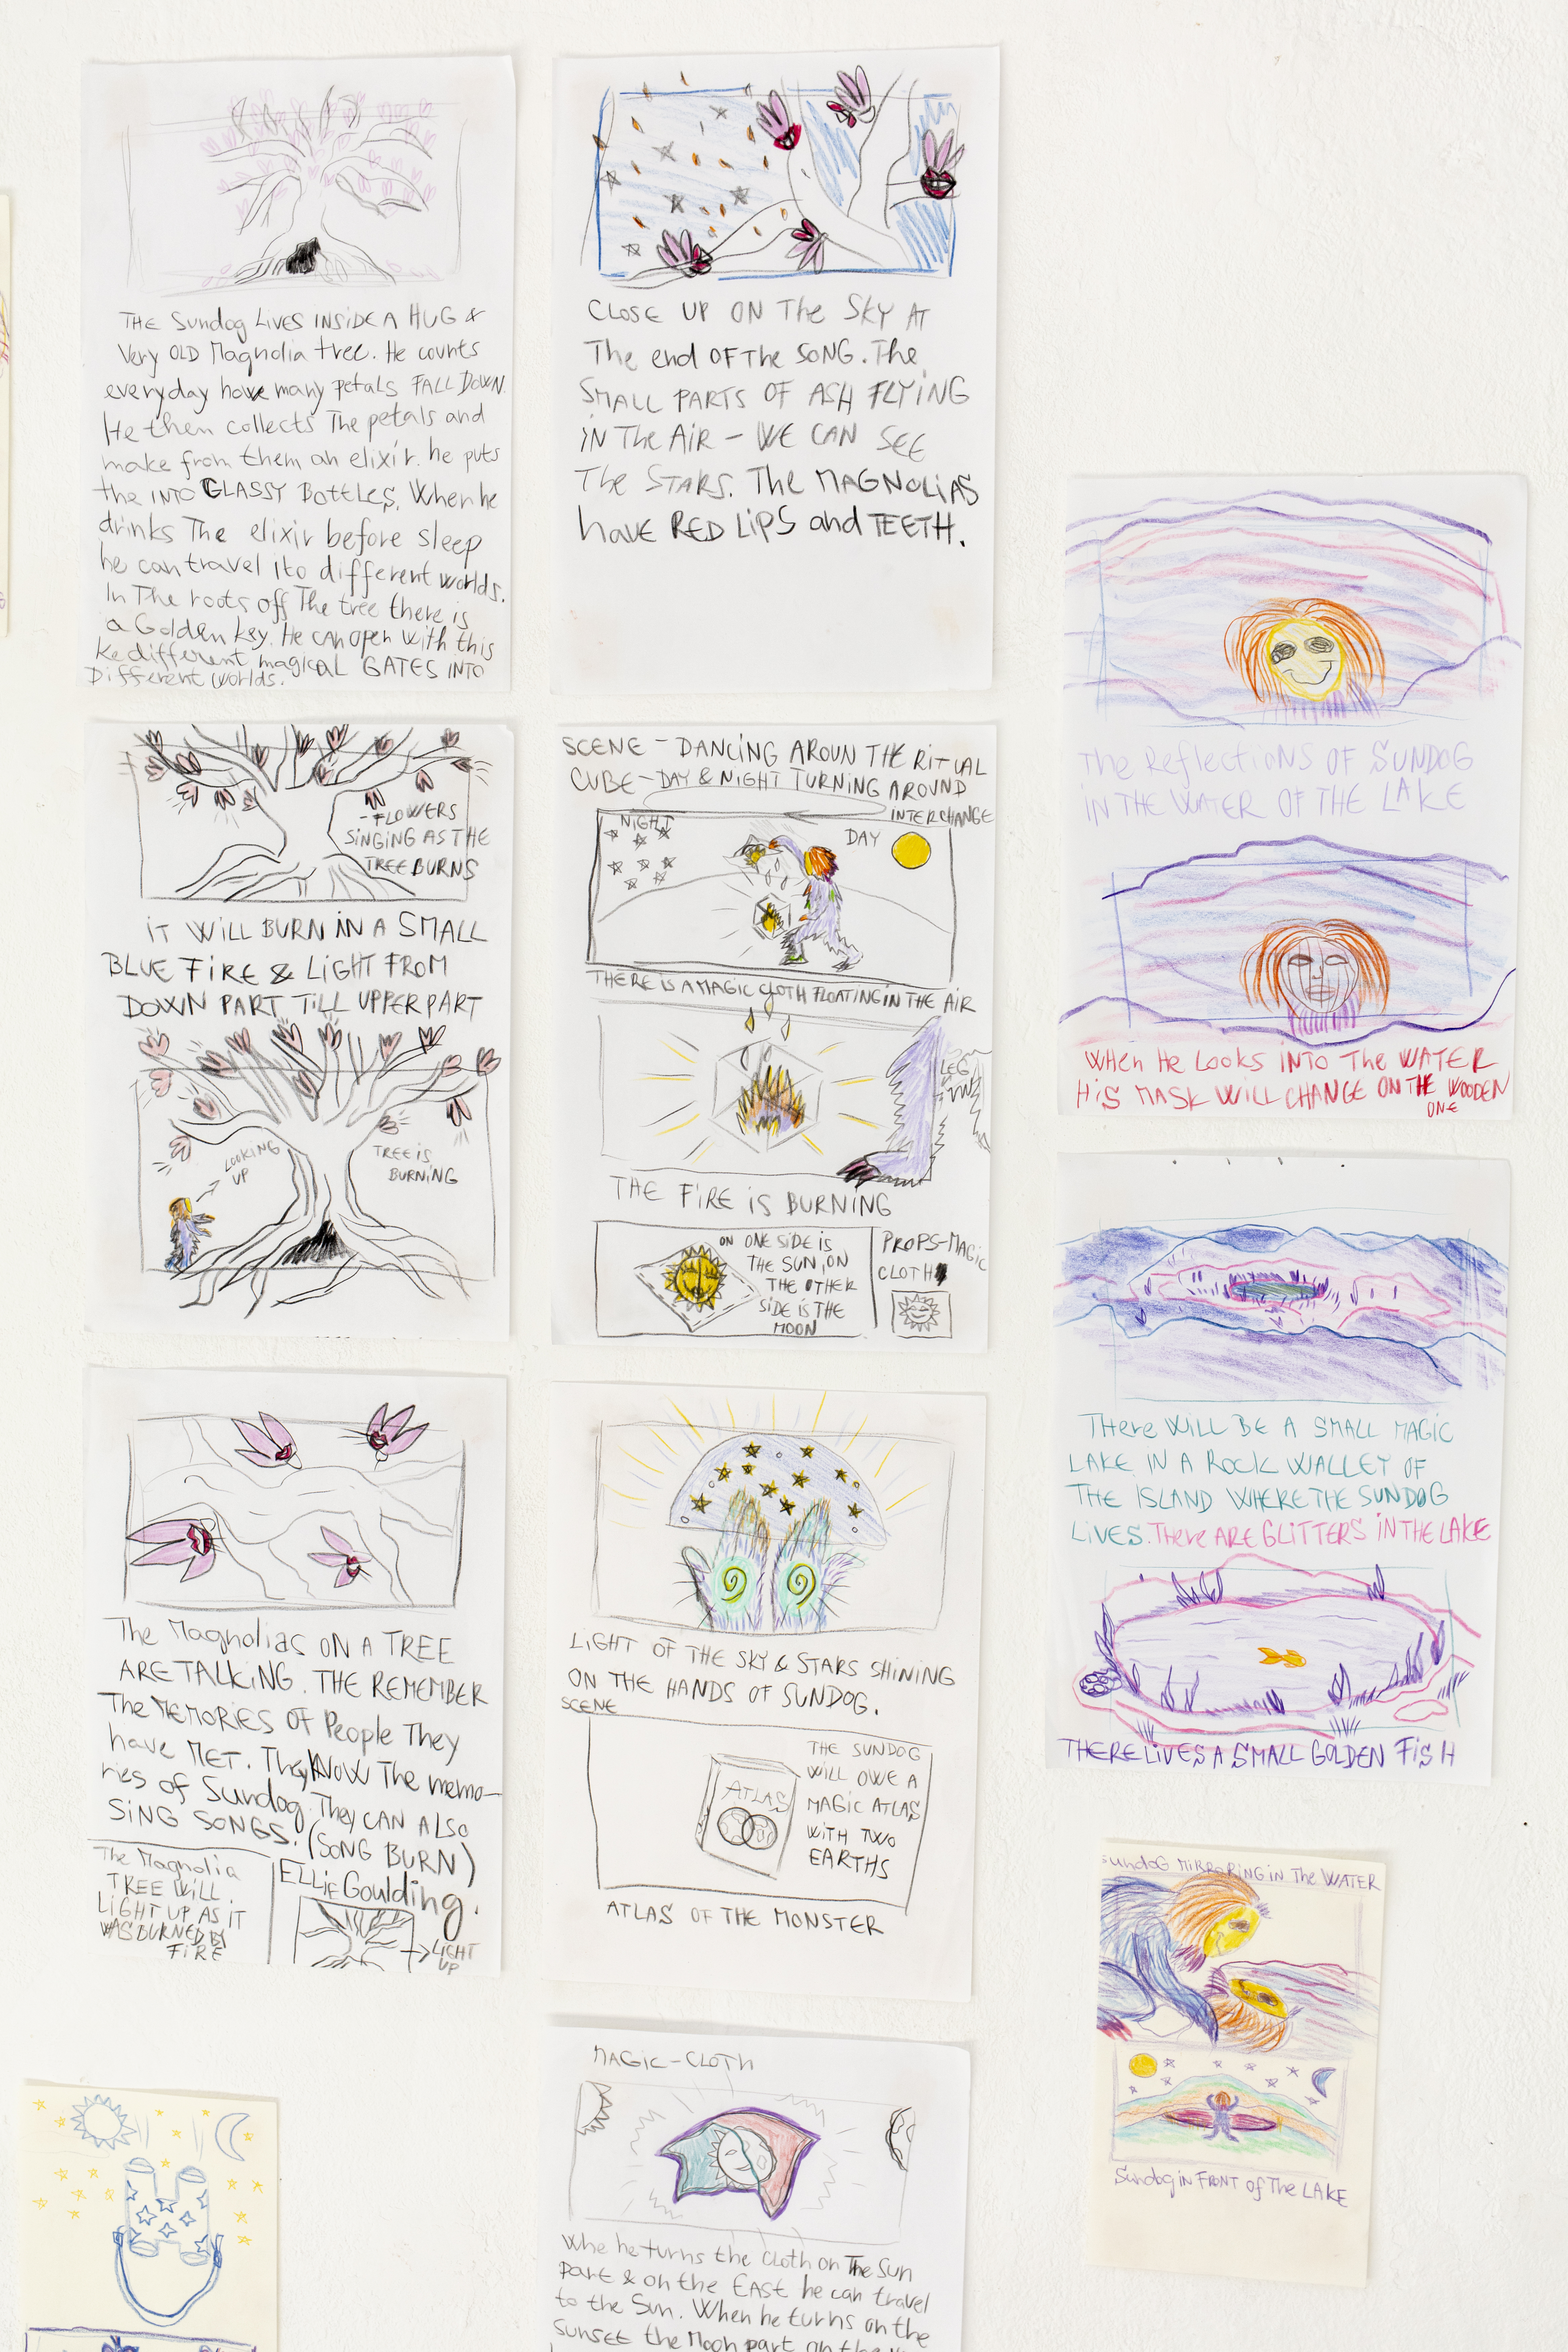 THE Sundog LIVES INSIDE A HUG &
Very OLD Magnolia tree. He counts
everyday how many petals FALL DOWN.
He then collects The petals and
make from them an elixir. he puts
the INTO GLASSY BOTTLES. When he
drinks The elixir before sleep
he can travel ito different worlds.
In The roots off The tree there is
a Golden key. He can open with this
Ke different magical GATES INTO
Different worlds.
-FLOWERS
SINGING AS THE
TREE BURNS
iT WILL BURN IN A SMALL
BLUE FIRE & LIGHT FROM
DOWN PART TILL UPPER PART
LOOKING
UP
TREE IS
BURNING
The Magnolias ON A TREE
ARE TALKING. THE REMEMBER
The MEMORIES OF People They
have MET. They KNOW The memo-
ries of Sundog. They CAN ALSO
SING SONGS. (SONG BURN)
ELLIE Goulding.
The Magnolia
TREE WILL
LIGHT UP AS IT
WAS BURNED BY
FIRE
LIGHT
UP
CLOSE UP ON The SKY AT
The end OF The SONG. The
SMALL PARTS OF ASH FLYING
IN The AIR – WE CAN SEE
The STARS. The MAGNOLIAS
have RED LIPS and TEETH.
SCENE – DANCING AROUN THE RITUAL
CUBE – DAY & NIGHT TURNING AROUND
INTERCHANGE
NIGHT
DAY
THERE IS A MAGIC CLOTH FLOATING IN THE AIR
LEG
THE FIRE IS BURNING
ON ONE SIDE IS
THE SUN, ON
THE OTHER
SIDE IS THE
MOON
PROPS-MAGIC
CLOTH
LIGHT OF THE SKY & STARS SHINING
ON THE HANDS OF SUNDOG.
SCENE
ATLAS
THE SUNDOG
WILL OWE A
MAGIC ATLAS
WITH TWO
EARTHS
ATLAS OF THE MONSTER
MAGIC-CLOTH
Whe he turns the cloth on The Sun
part & on the EAST he can travel
to the Sun. When he turns on the
sunset the Moon part on the
The Reflections OF SUNDOG
IN THE WATER OF THE LAKE
When He Looks INTO The WATER
HiS MASK WILL CHANGE ON THE WOODEN
ONE
There WILL BE A SMALL MAGIC
LAKE IN A ROCK WALLEY OF
THE ISLAND WHERE THE SUNDOG
LIVES. There ARE GLITTERS IN THE LAKE
THERE LIVES A SMALL GOLDEN FISH
Sundog MIRRORING in The WATER
Sundog in FRONT of The LAKE